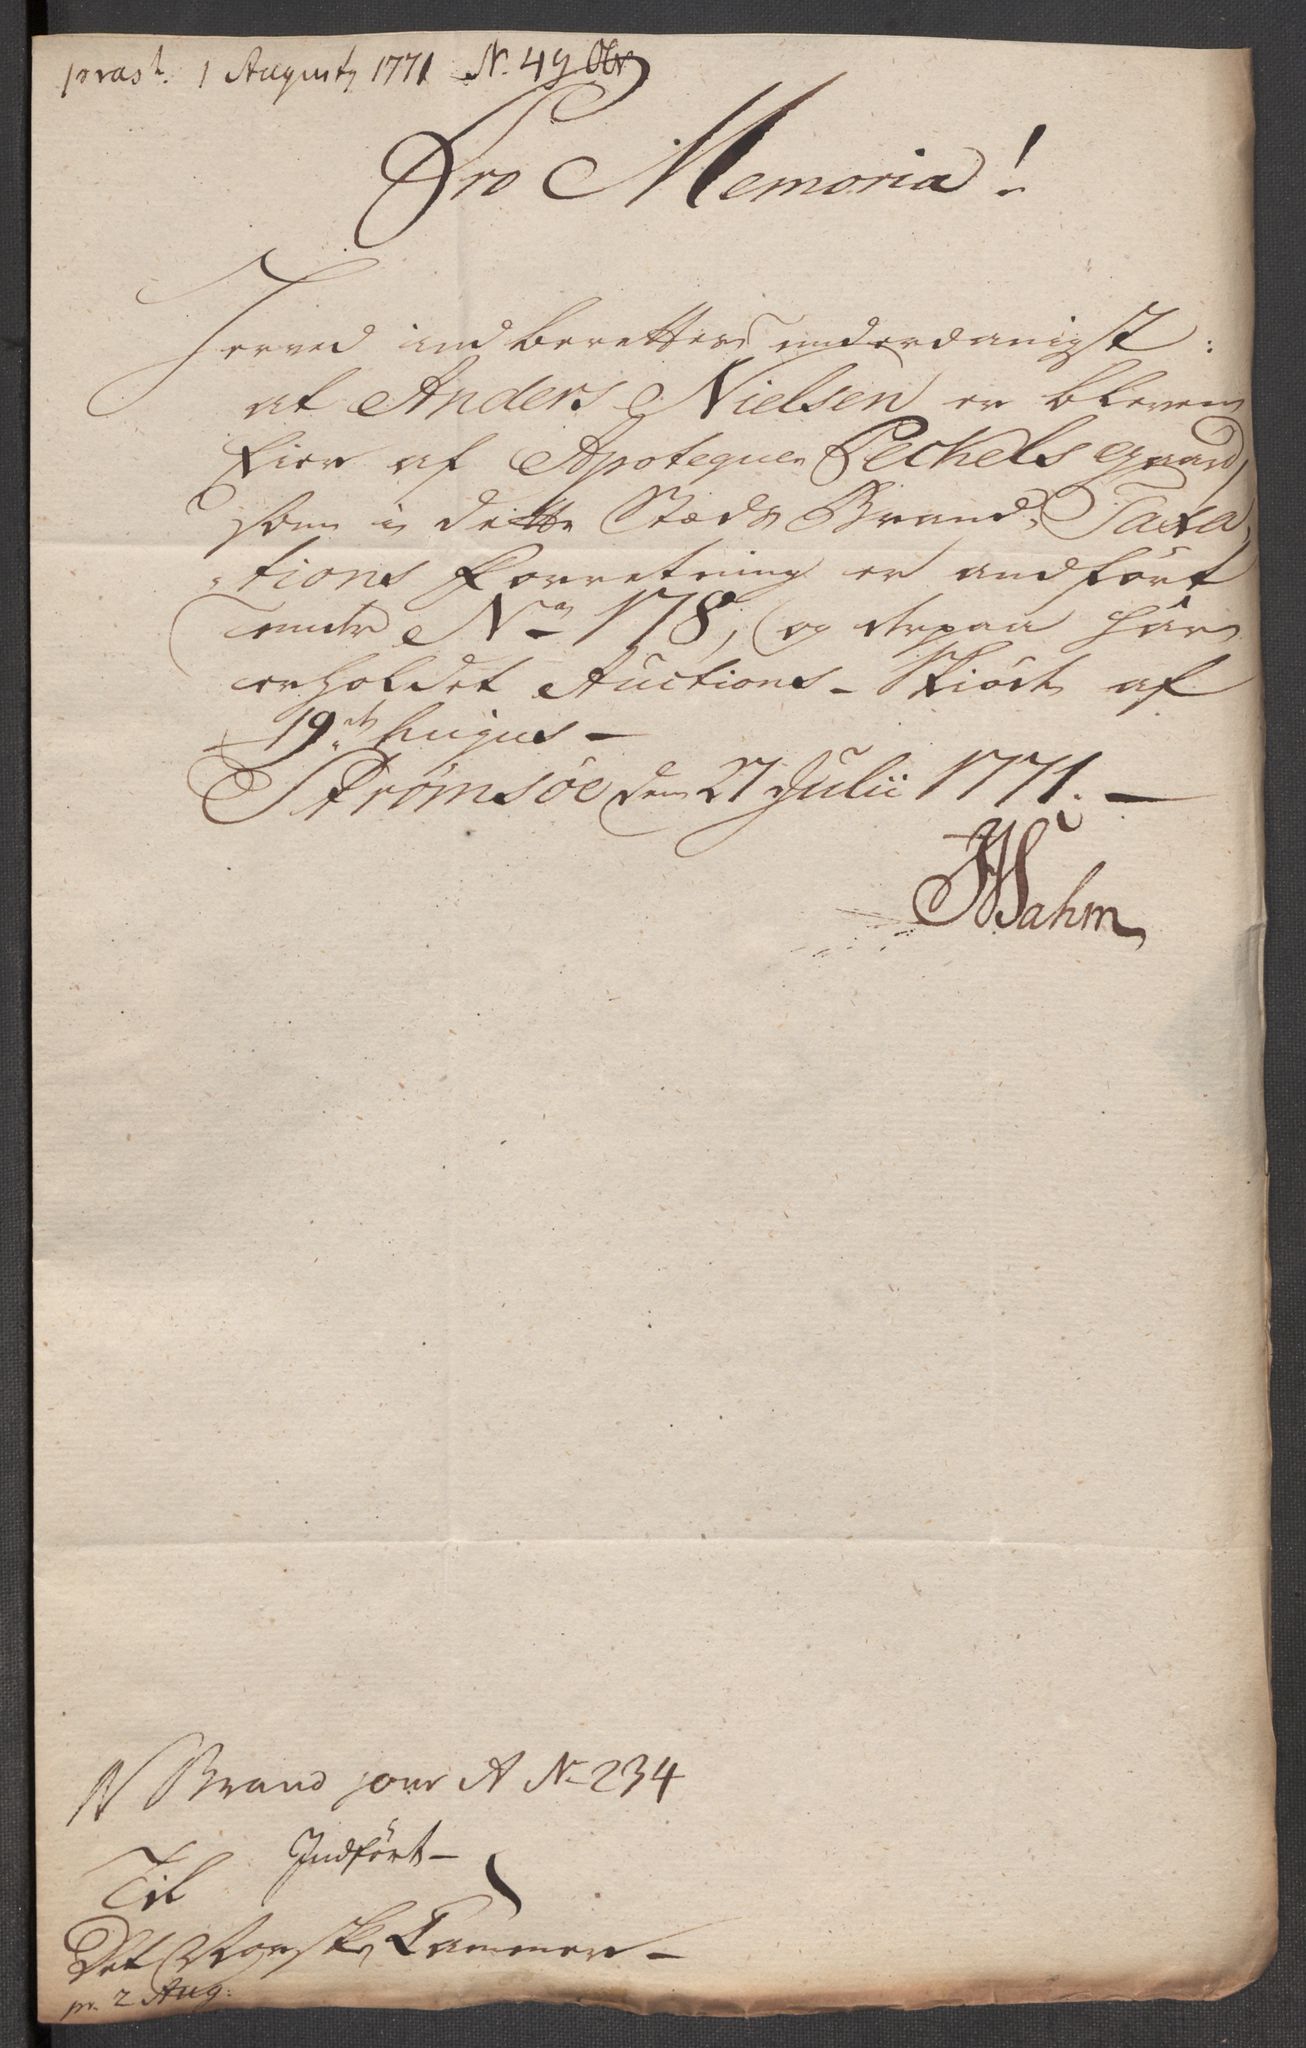 præst. 1 Augusti 1771 N. 49
Pro Memoria!
Herved indberettes underdanigst:
at Anders Nielsen er bleven
Eier af Apotequer Peckels gaard
som i dette Stæds Brand Taxa
tions Forretning er andført
under No 178, og derpaa har
erholdet Auctions-Skiöde af
19de hujus -
Strømsöe den 27 Julii 1771. -
Wahm
N Brand jour A No 234
Indført -
Til
Det Norske Cammer -
pr. 2 Aug: